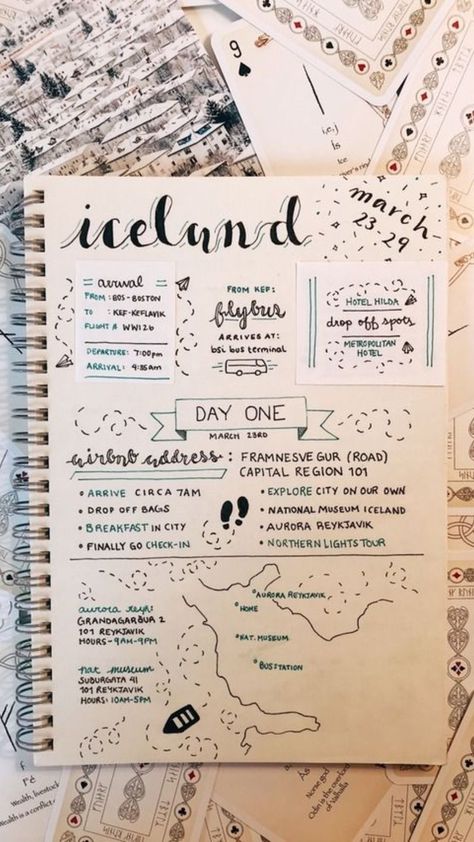 iceland
march
23-29
arrival
FROM: BOS-BOSTON
TO : KEF-KEFLAVIK
FLIGHT # WW126
DEPARTURE: 7:00pm
ARRIVAL: 4:35am
FROM KEF:
flybus
ARRIVES AT:
bsi bus terminal
HOTEL HILDA
drop off spots
METROPOLITAN
HOTEL
DAY ONE
MARCH 23RD
airbnb address: FRAMNESVEGUR (ROAD)
CAPITAL REGION 101
• ARRIVE CIRCA 7AM
• DROP OFF BAGS
• BREAKFAST IN CITY
• FINALLY GO CHECK-IN
• EXPLORE CITY ON OUR OWN
• NATIONAL MUSEUM ICELAND
• AURORA REYKJAVIK
• NORTHERN LIGHTS TOUR
aurora reyk:
GRANDAGARÐUR 2
101 REYKJAVIK
HOURS-9AM-9PM
nat museum
SUBURGATA 41
101 REYKJAVIK
HOURS: 10AM-5PM
AURORA REYKJAVIK
HOME
NAT. MUSEUM
BUSSTATION
9
i,e,j
is
ice
Fé
Wealth, livestock
Wealth is a conflict
Áss
Norse god
Odin is the overlord
of Valhalla